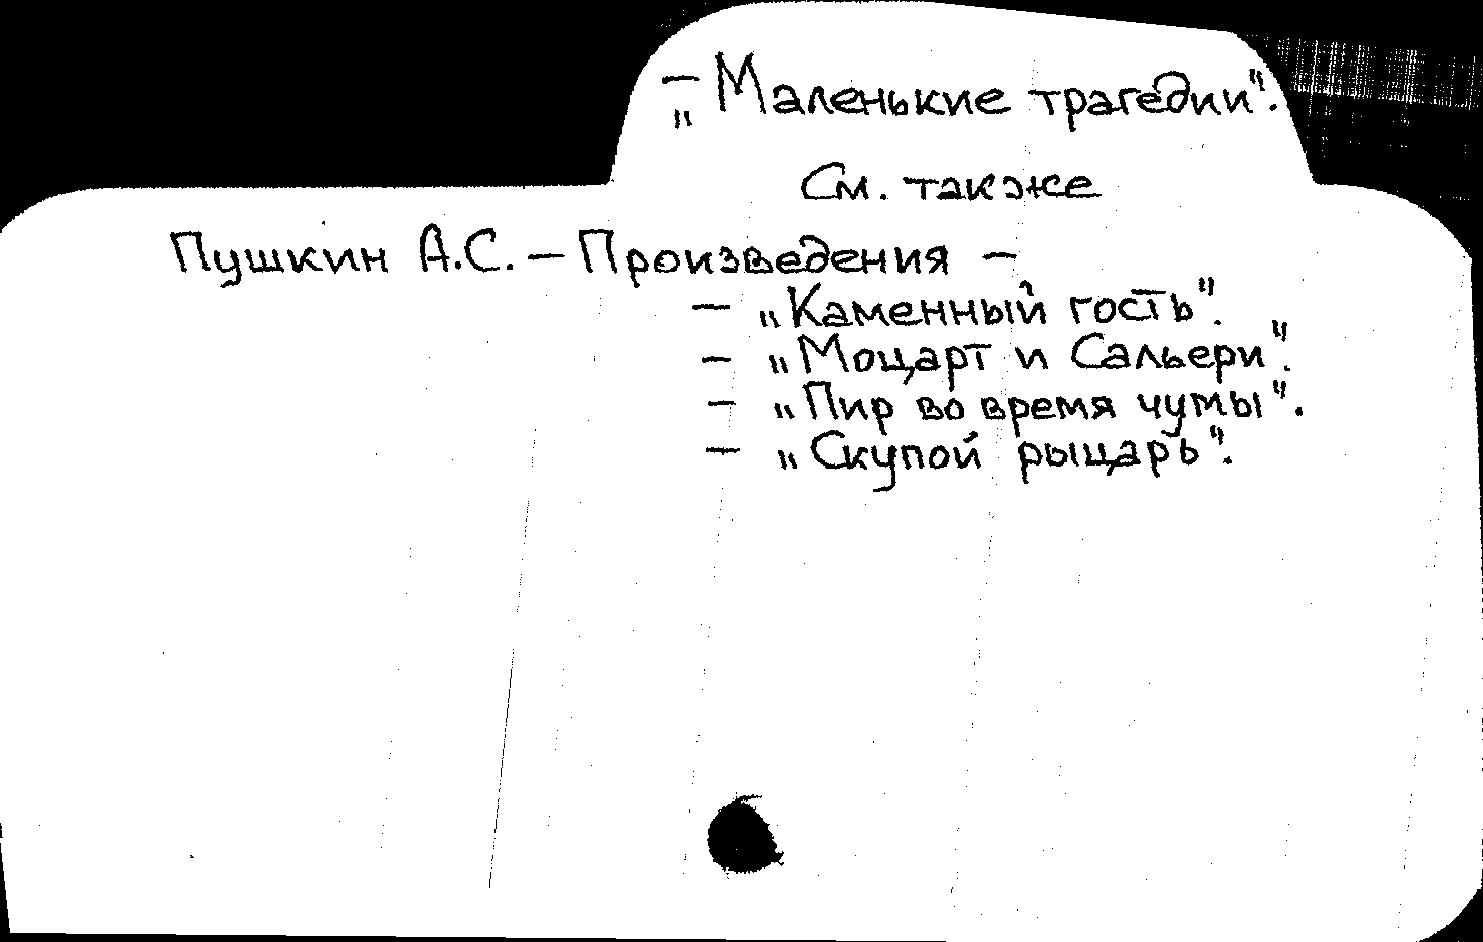 – „Маленькие трагедии".
См. также
Пушкин А.С. – Произведения –
– „Каменный гость".
– „Моцарт и Сальери".
– „Пир во время чумы".
– „Скупой рыцарь".